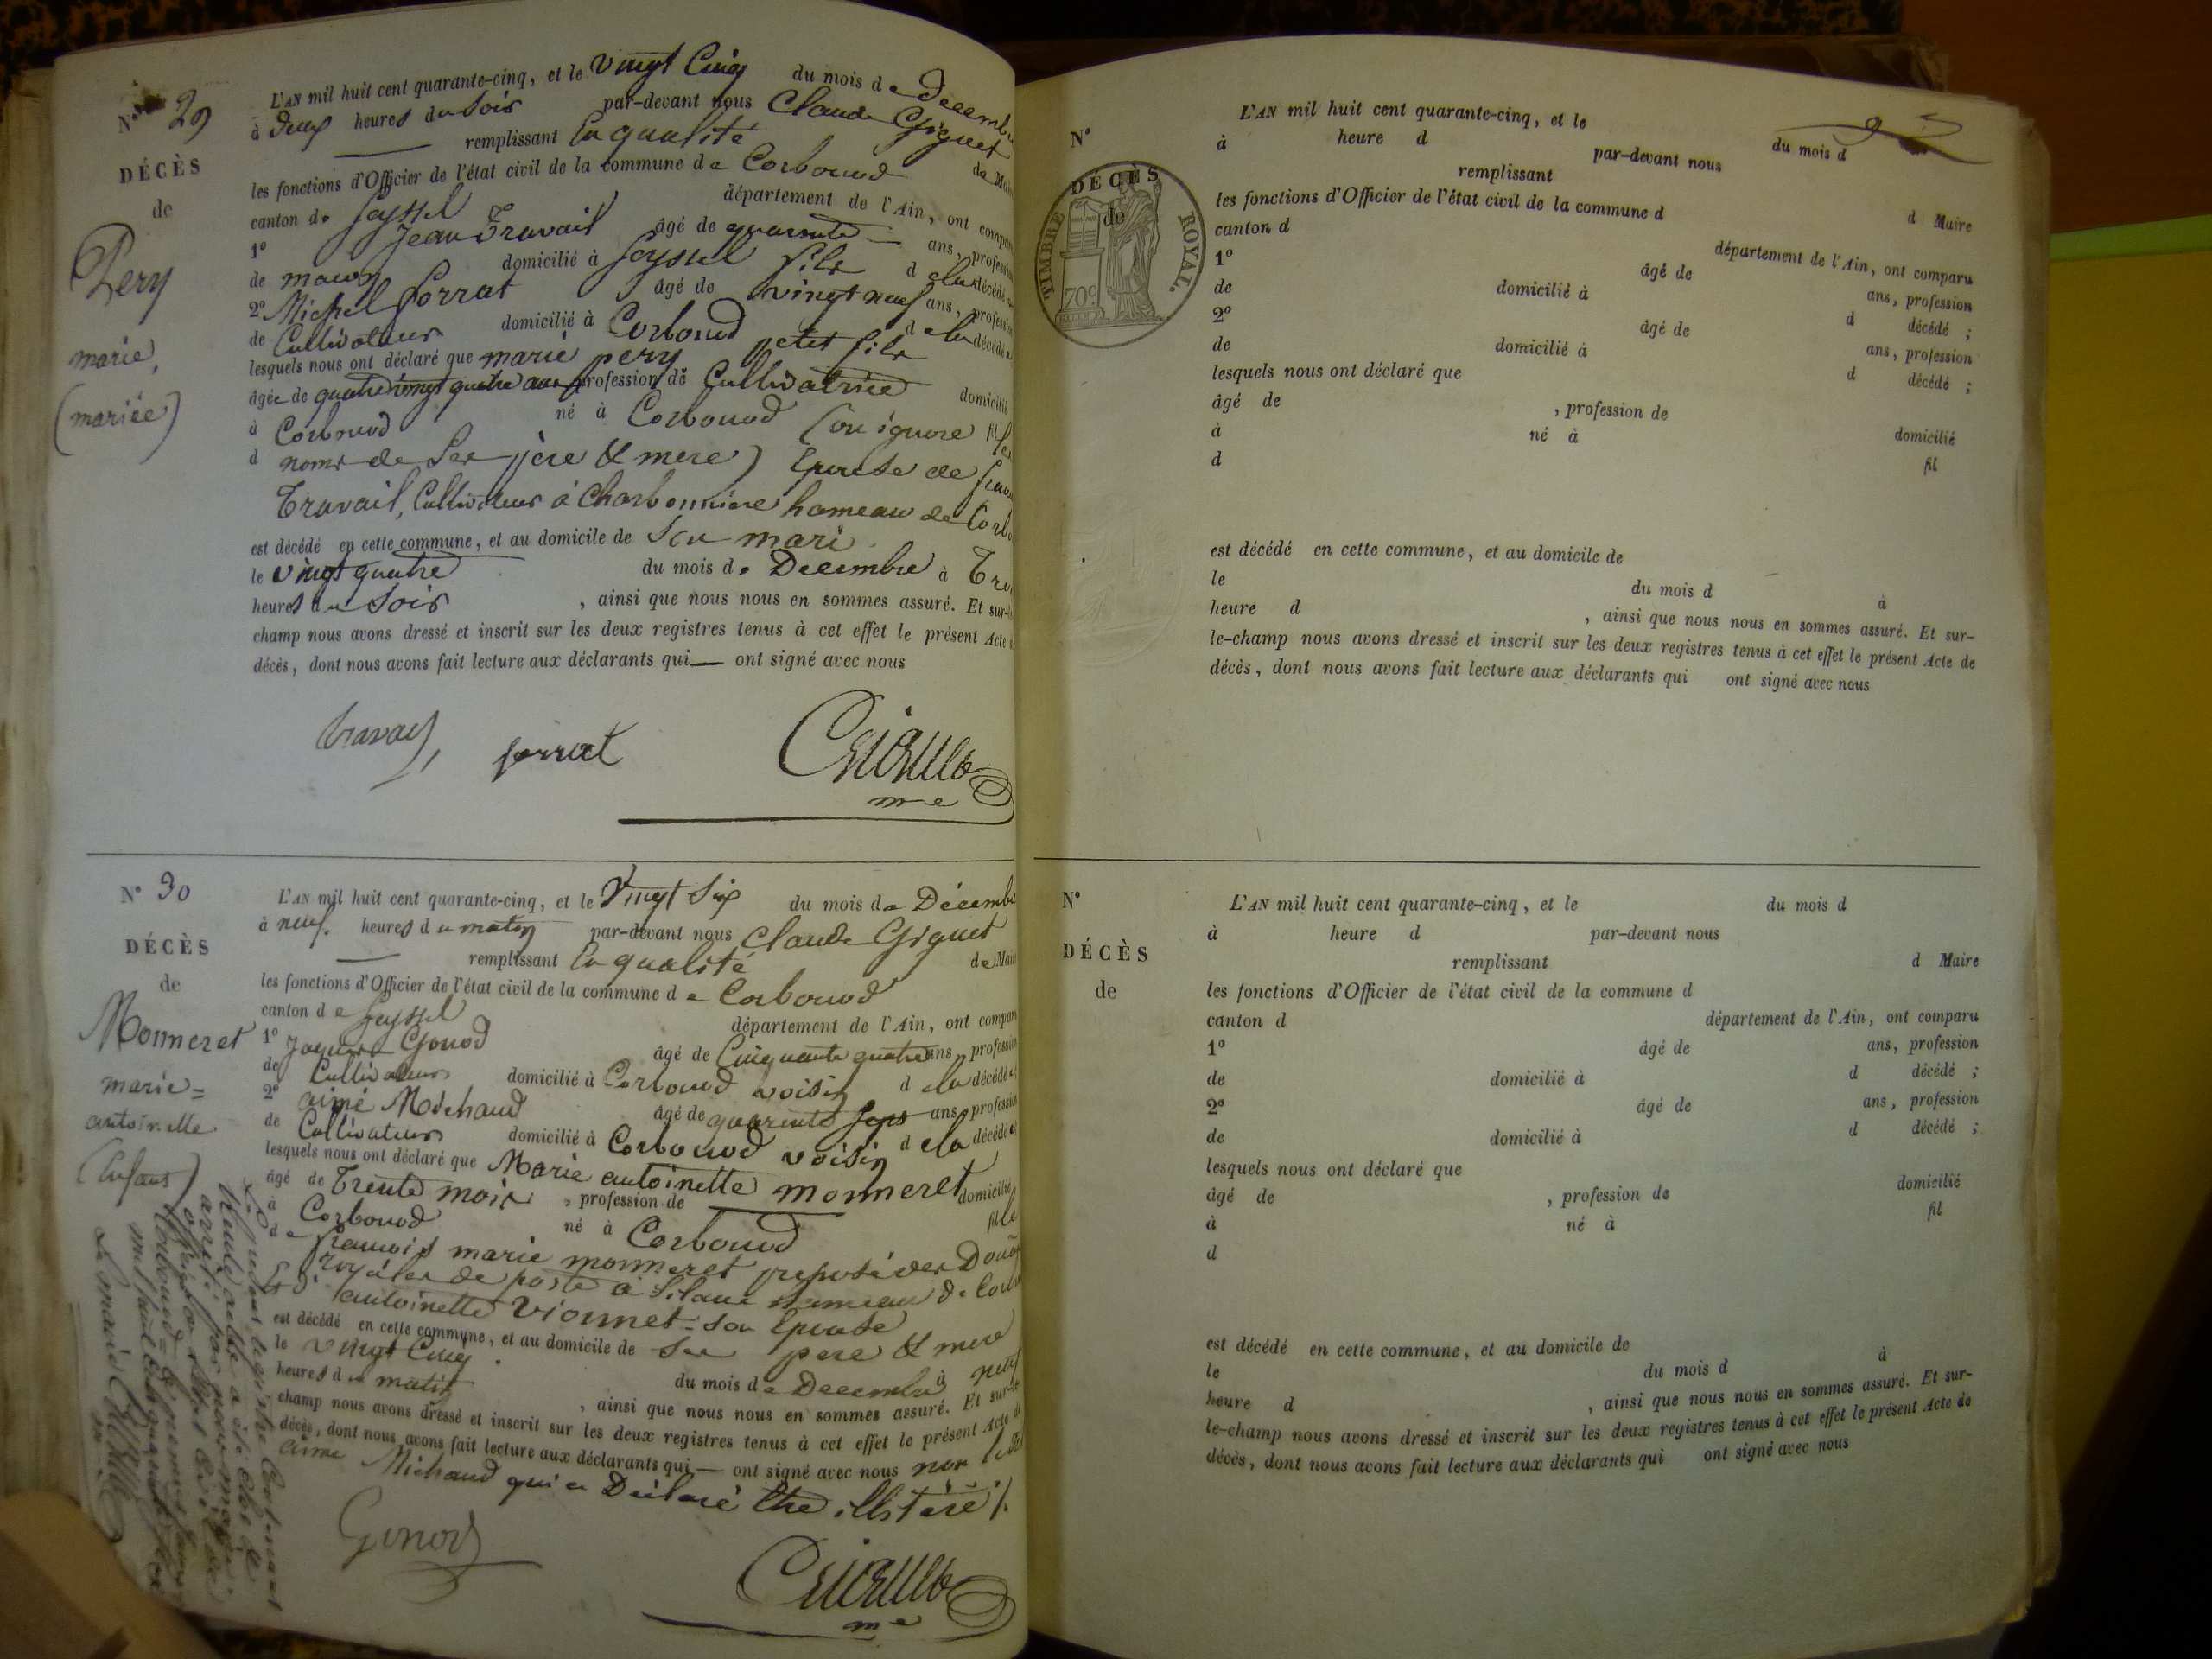 N° 29
DÉCÈS
de
Pery
marie,
(mariée)
L'AN mil huit cent quarante-cinq, et le vingt Cinq du mois de Decembre
à deux heures du Soir par-devant nous Claude Giguet
remplissant en qualité de Maire
les fonctions d'Officier de l'état civil de la commune de Corbonod
canton de Seyssel département de l'Ain, ont comparu
1° Jean Travail âgé de quarante ans, profession
de maçon domicilié à Seyssel fils de la décédée
2° Michel Sorrat âgé de vingt neuf ans, profession
de Cultivateur domicilié à Corbonod petit fils de la décédée
lesquels nous ont déclaré que marie pery
âgée de quatrevingt quatre ans profession de Cultivatrice domicilié
à Corbonod né à Corbonod (on ignore les
d noms de Ses père & mere) Epouse de
Travail, Cultivateur à Charbonniere hameau de
est décédé en cette commune, et au domicile de Son mari
le vingt quatre du mois de Decembre à
heures du Soir , ainsi que nous nous en sommes assuré. Et sur-le
champ nous avons dressé et inscrit sur les deux registres tenus à cet effet le présent Acte
décès, dont nous avons fait lecture aux déclarants qui — ont signé avec nous
travail, sorrat
me
N° 30
DÉCÈS
de
Monneret
marie=
antoinette
(Enfant)
L'AN mil huit cent quarante-cinq, et le Vingt Six du mois de Décembre
à neuf heures du matin par-devant nous Claude Giguet
remplissant en qualité de Maire
les fonctions d'Officier de l'état civil de la commune de Corbonod
canton de Seyssel département de l'Ain, ont comparu
1° Jaques Gonod âgé de Cinquante quatre ans, profession
de Cultivateur domicilié à Corbonod voisin de la décédée
2° aimé Michaud âgé de quarante Sept ans, profession
de Cultivateur domicilié à Corbonod voisin de la décédée
lesquels nous ont déclaré que Marie antoinette monneret
âgé de Trente mois , profession de — domicilié
à Corbonod né à Corbonod fille
de francois marie monneret preposé des Douanes
royales de poste à Silans hameau de
Et d'antoinette Vionnet son Epouse
est décédé en cette commune, et au domicile de Ses pere & mere
le vingt Cinq du mois de Decembre à neuf
heures du matin , ainsi que nous nous en sommes assuré. Et sur-le
champ nous avons dressé et inscrit sur les deux registres tenus à cet effet le présent Acte de
décès, dont nous avons fait lecture aux déclarants qui — ont signé avec nous non
aimé Michaud qui a Déclaré être illitéré /.
Gonod
me
N°
DÉCÈS
de
TIMBRE ROYAL.
70c
L'AN mil huit cent quarante-cinq, et le du mois d
à heure d par-devant nous
remplissant d Maire
les fonctions d'Officier de l'état civil de la commune d
canton d département de l'Ain, ont comparu
1° âgé de ans, profession
de domicilié à d décédé ;
2° âgé de ans, profession
de domicilié à d décédé ;
lesquels nous ont déclaré que
âgé de , profession de domicilié
à né à fil
d
est décédé en cette commune, et au domicile de
le du mois d à
heure d , ainsi que nous nous en sommes assuré. Et sur-
le-champ nous avons dressé et inscrit sur les deux registres tenus à cet effet le présent Acte de
décès, dont nous avons fait lecture aux déclarants qui ont signé avec nous
N°
DÉCÈS
de
L'AN mil huit cent quarante-cinq, et le du mois d
à heure d par-devant nous
remplissant d Maire
les fonctions d'Officier de l'état civil de la commune d
canton d département de l'Ain, ont comparu
1° âgé de ans, profession
de domicilié à d décédé ;
2° âgé de ans, profession
de domicilié à d décédé ;
lesquels nous ont déclaré que
âgé de , profession de domicilié
à né à fil
d
est décédé en cette commune, et au domicile de
le du mois d à
heure d , ainsi que nous nous en sommes assuré. Et sur-
le-champ nous avons dressé et inscrit sur les deux registres tenus à cet effet le présent Acte de
décès, dont nous avons fait lecture aux déclarants qui ont signé avec nous